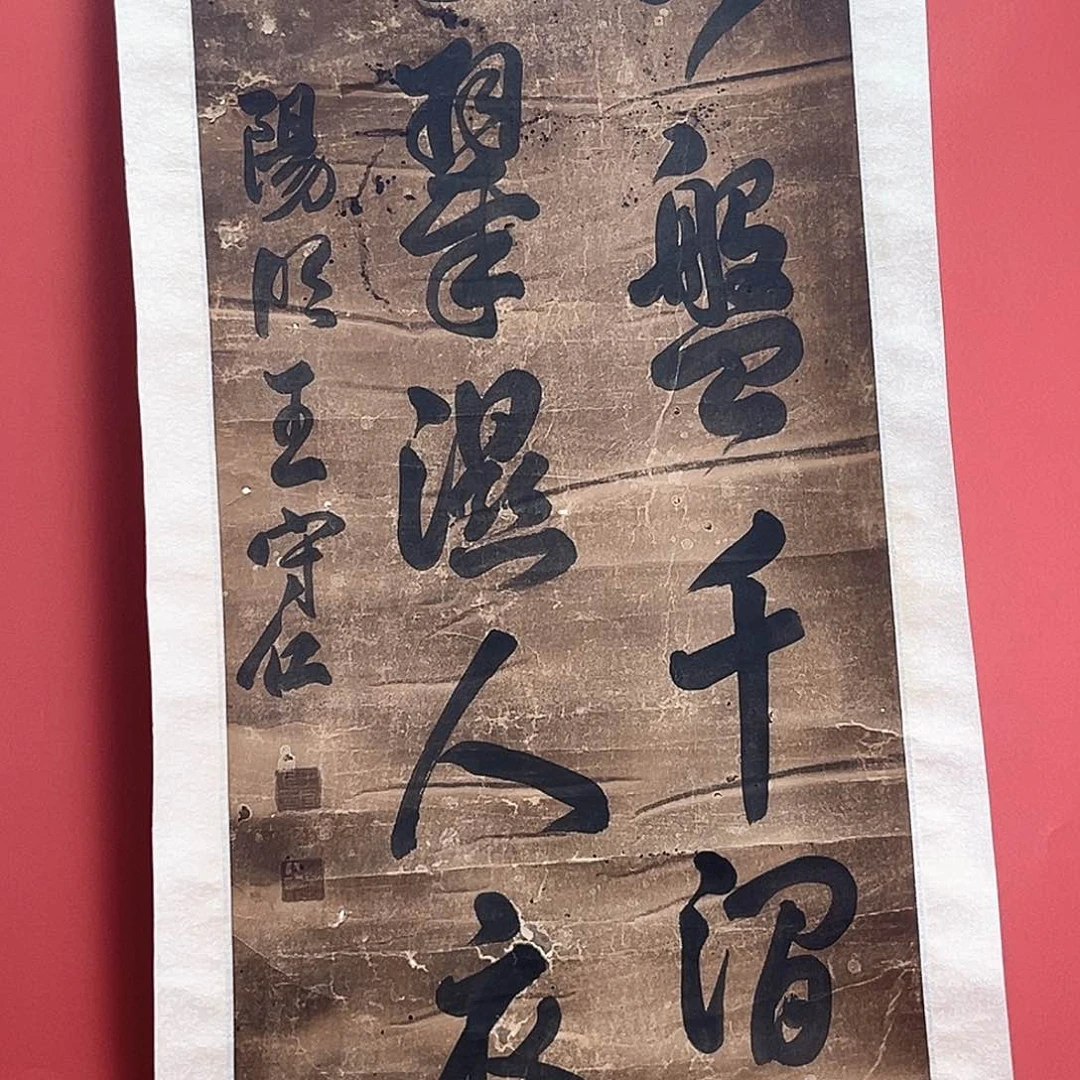 盤千澗
翠濕人衣
陽明王守仁